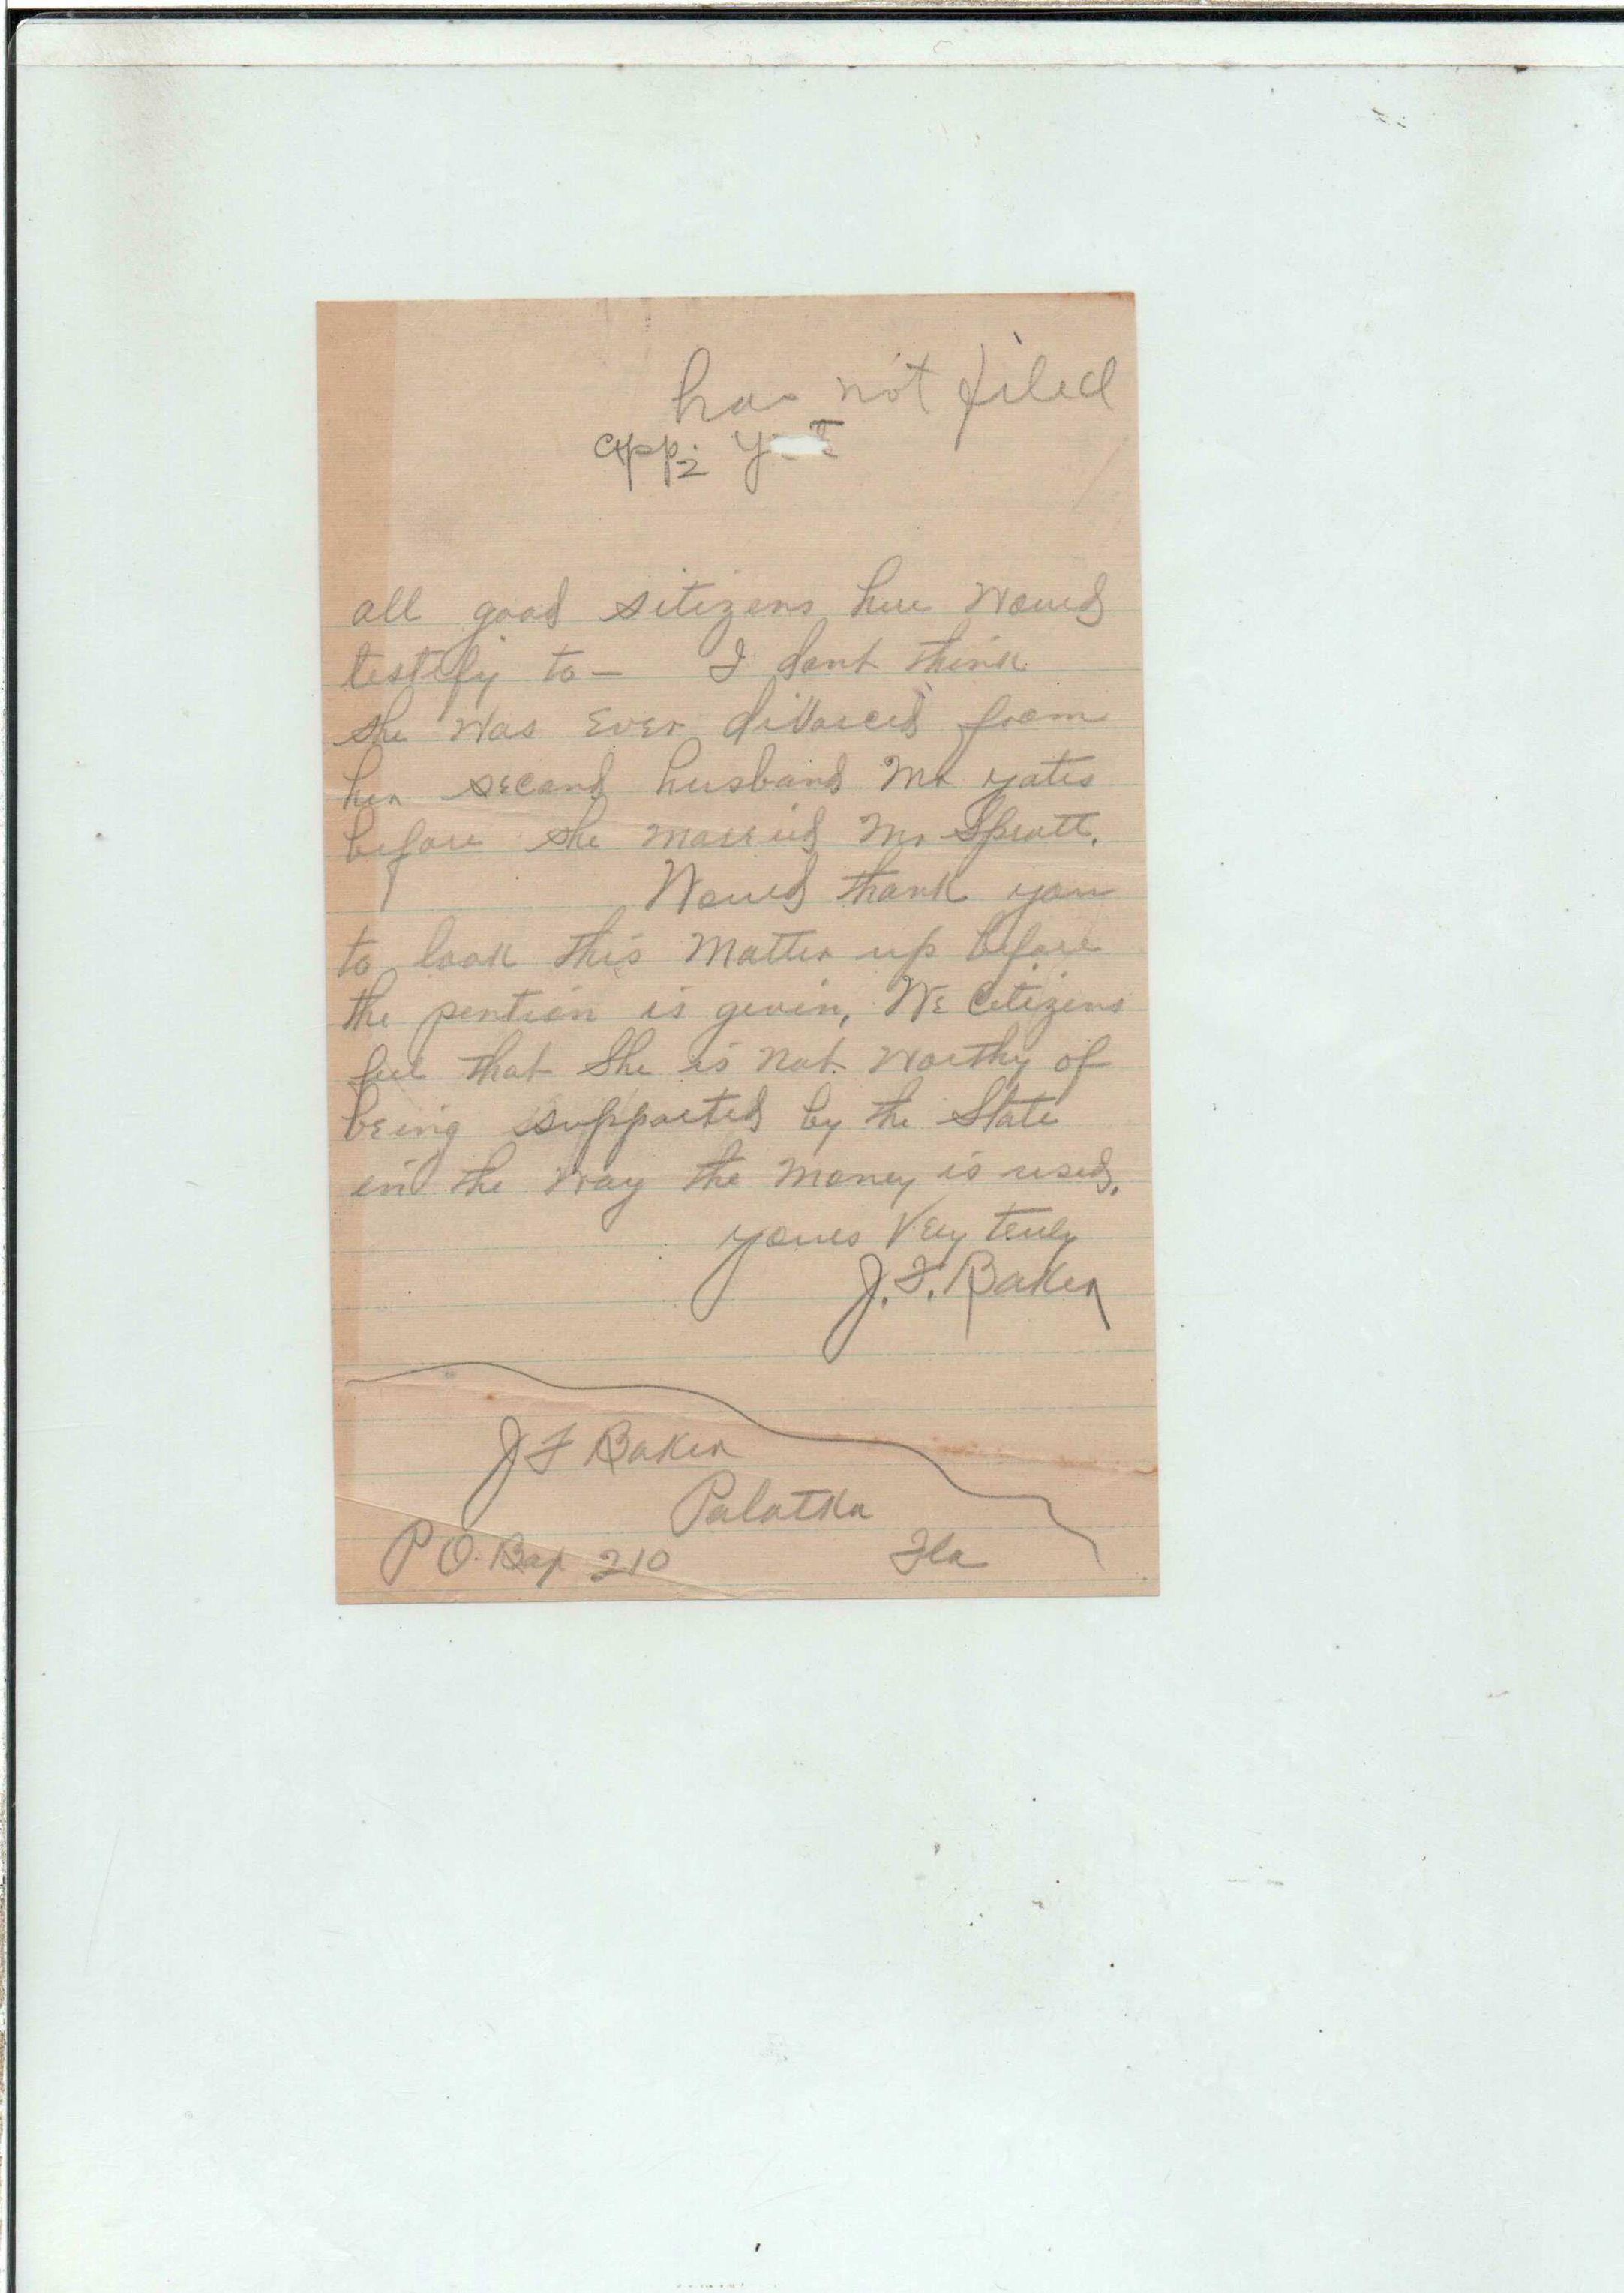 has not filed
app.
all good sitizens here would
testify to — I dont think
she was Ever divorced from
her second husband Mr yates
before she married Mr Spratt.
Would thank you
to look this Matter up before
the pention is given, We Citizens
feel that She is Not. worthy of
being supported by the State
in the way the money is used.
yours Very truly
J. F. Baker
J F Baker
Palatka
P O. Box 210 Fla